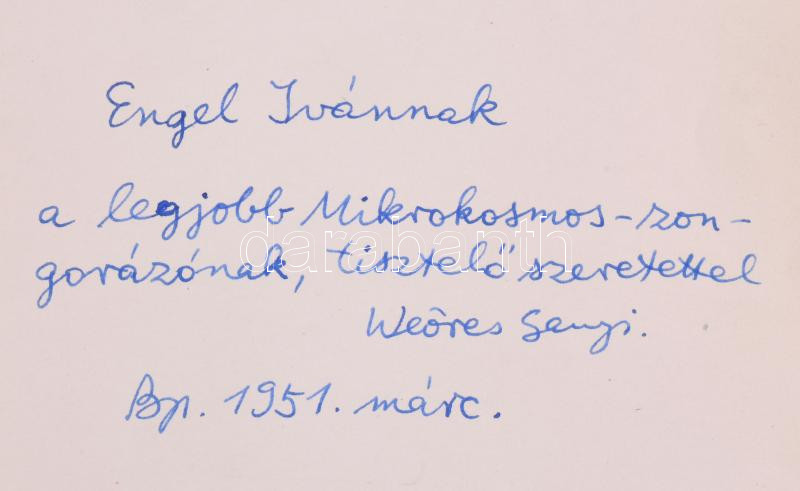 Engel Ivánnak
a legjobb Mikrokosmos-zon-
gorázónak, tisztelő szeretettel
Weöres Sanyi.
Bp. 1951. márc.
darabanth